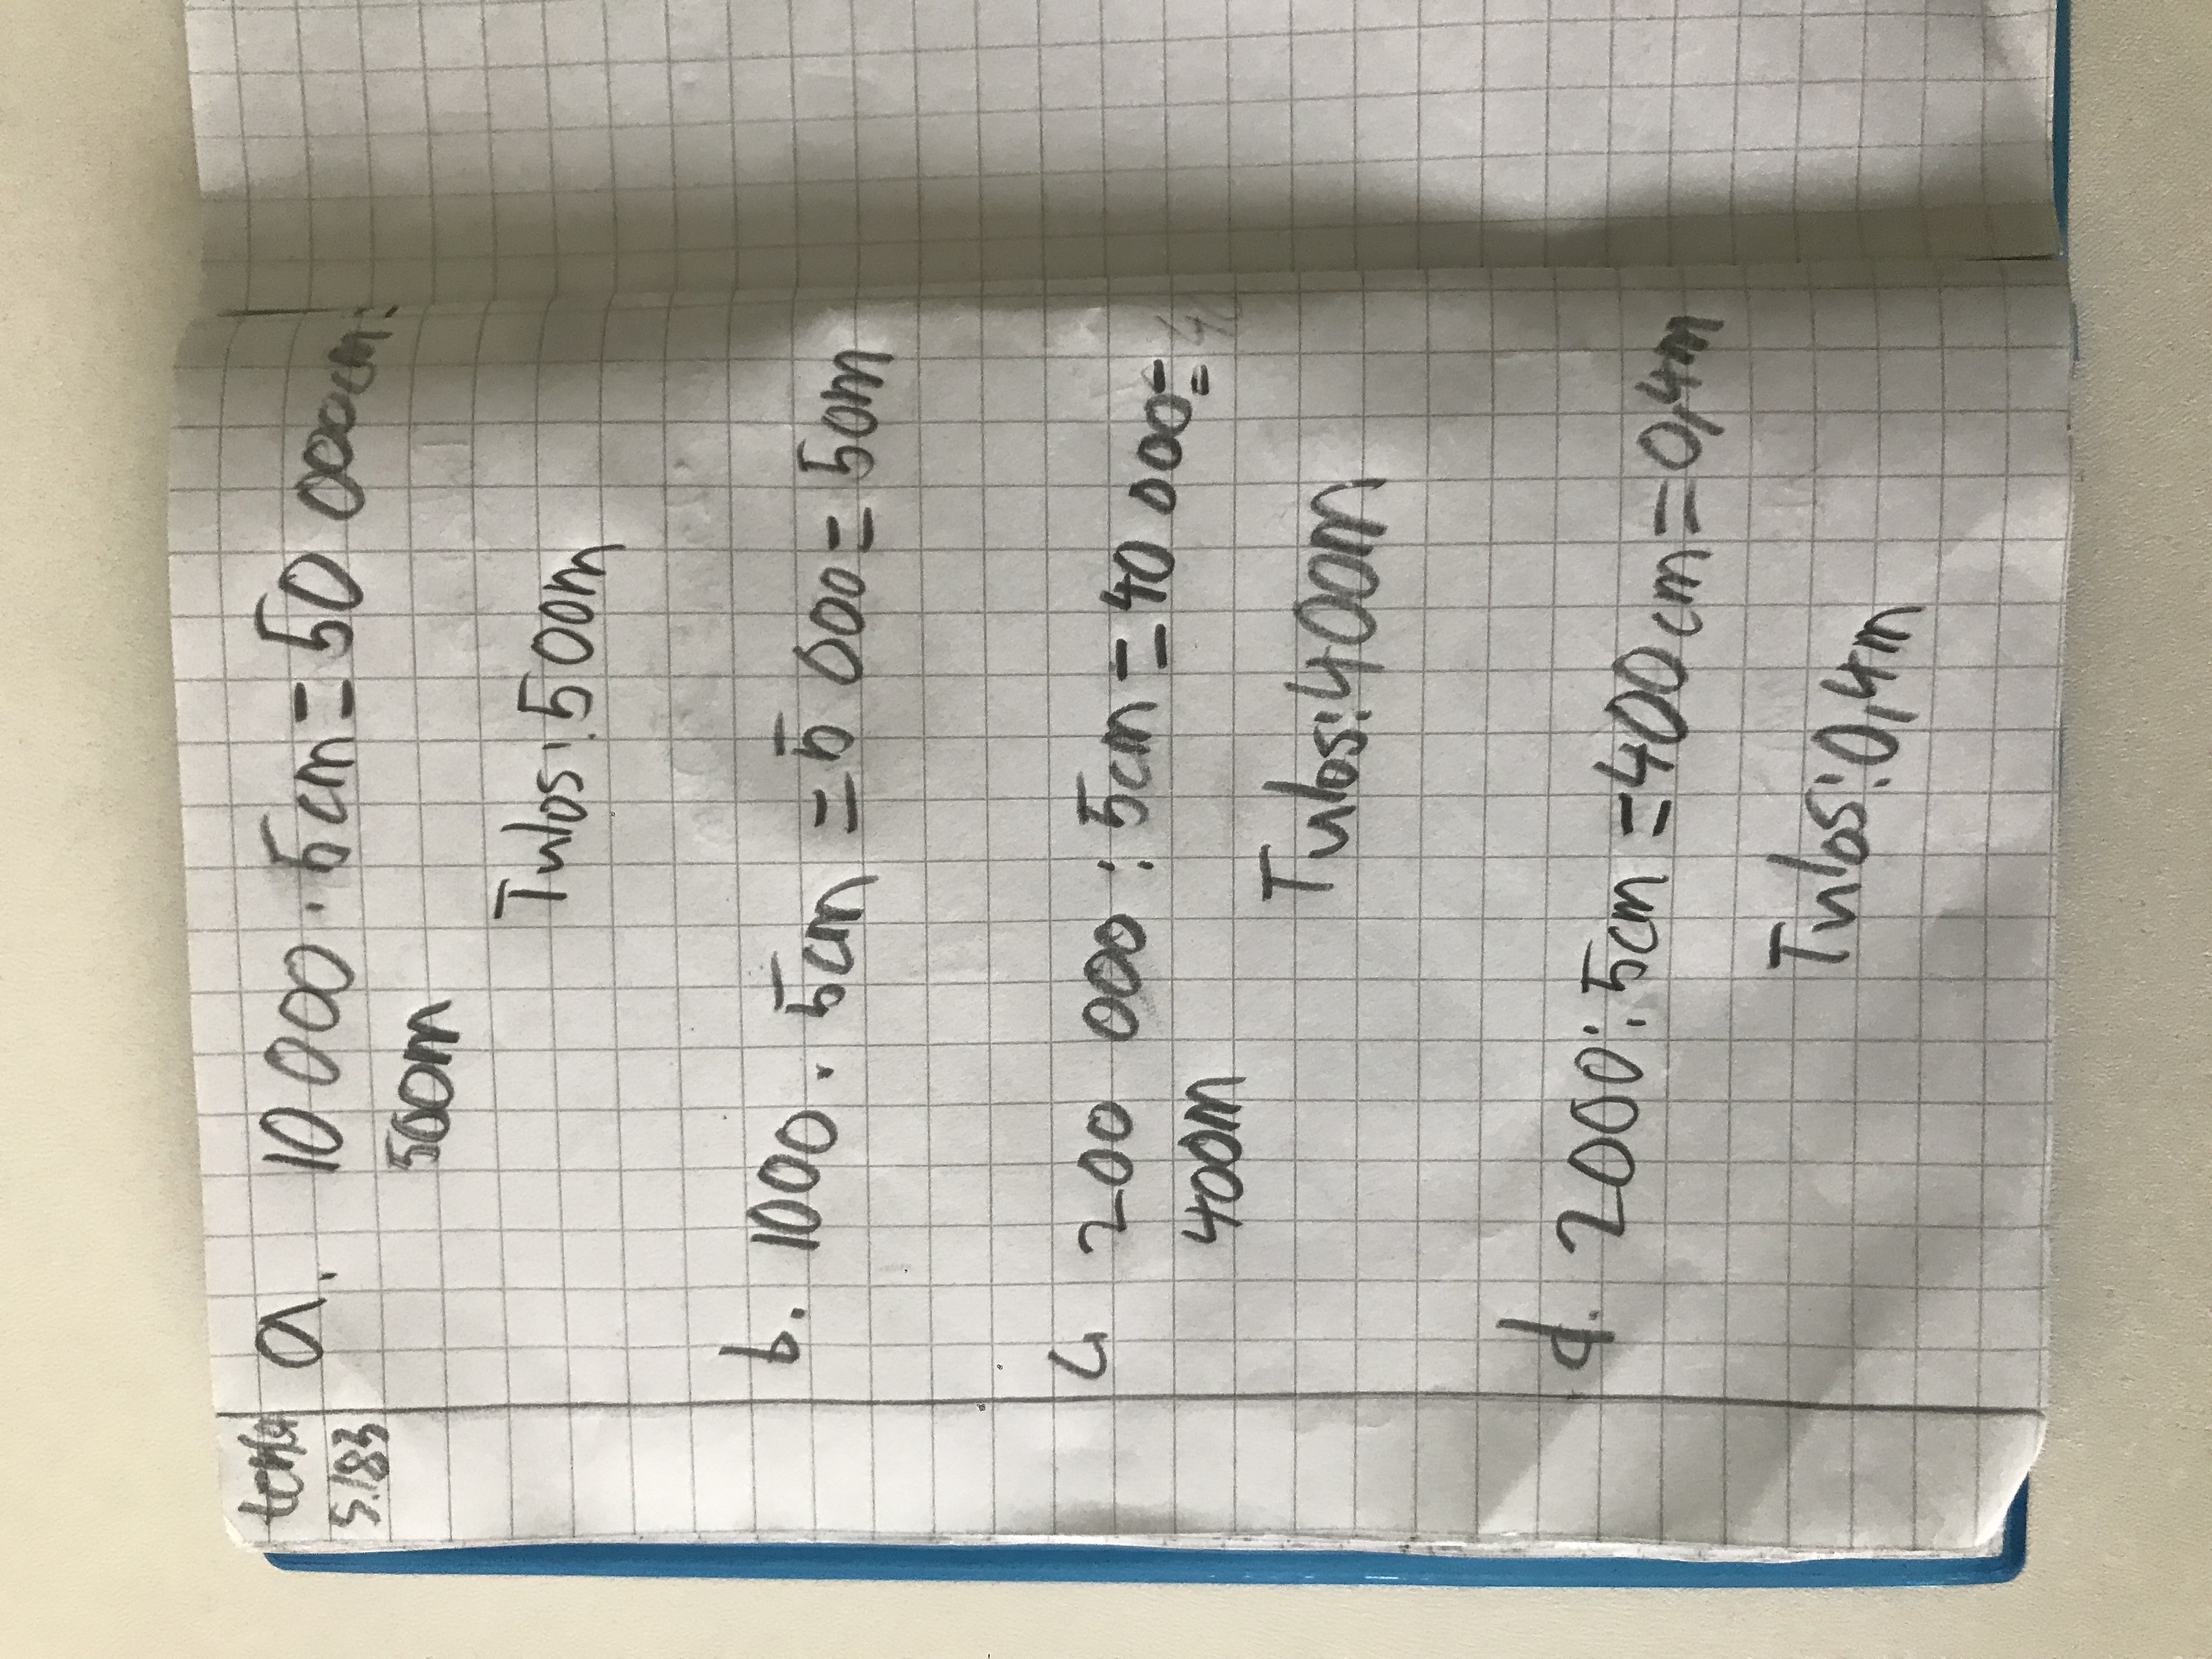 s.183
a. 10 000 · 5cm = 50 000cm =
500m
Tulos: 500m
b. 1000 · 5cm = 5 000 = 50m
c. 200 000 : 5cm = 40 000 =
400m
Tulos: 400m
d. 2000 : 5cm = 400cm = 0,4m
Tulos: 0,4m